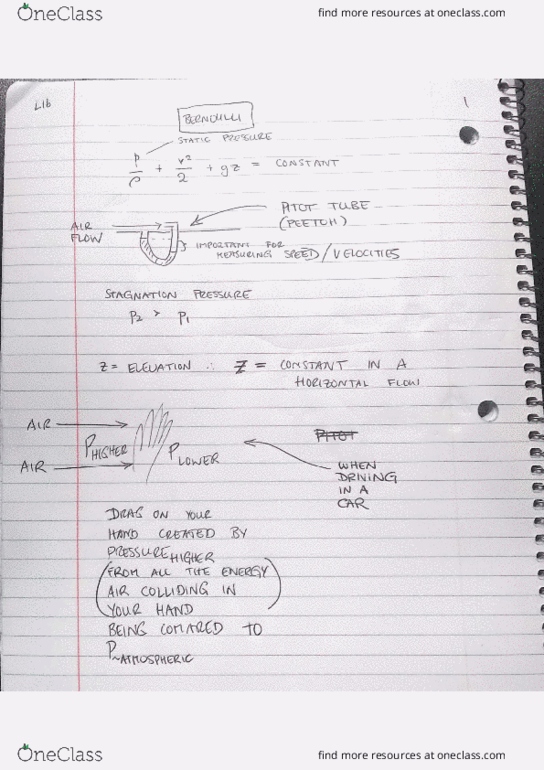 OneClass
find more resources at oneclass.com
L16
1
BERNOULLI
STATIC PRESSURE
P/ρ + v²/2 + gz = CONSTANT
PITOT TUBE
(PEETOH)
AIR
FLOW
IMPORTANT FOR
MEASURING SPEED/VELOCITIES
STAGNATION PRESSURE
P₂ > P₁
Z = ELEVATION ∴ Z = CONSTANT IN A
HORIZONTAL FLOW
AIR
P HIGHER
P LOWER
AIR
PITOT
WHEN
DRIVING
IN A
CAR
DRAG ON YOUR
HAND CREATED BY
PRESSURE HIGHER
(FROM ALL THE ENERGY
AIR COLLIDING IN
YOUR HAND)
BEING COMARED TO
P ~ATMOSPHERIC
OneClass
find more resources at oneclass.com